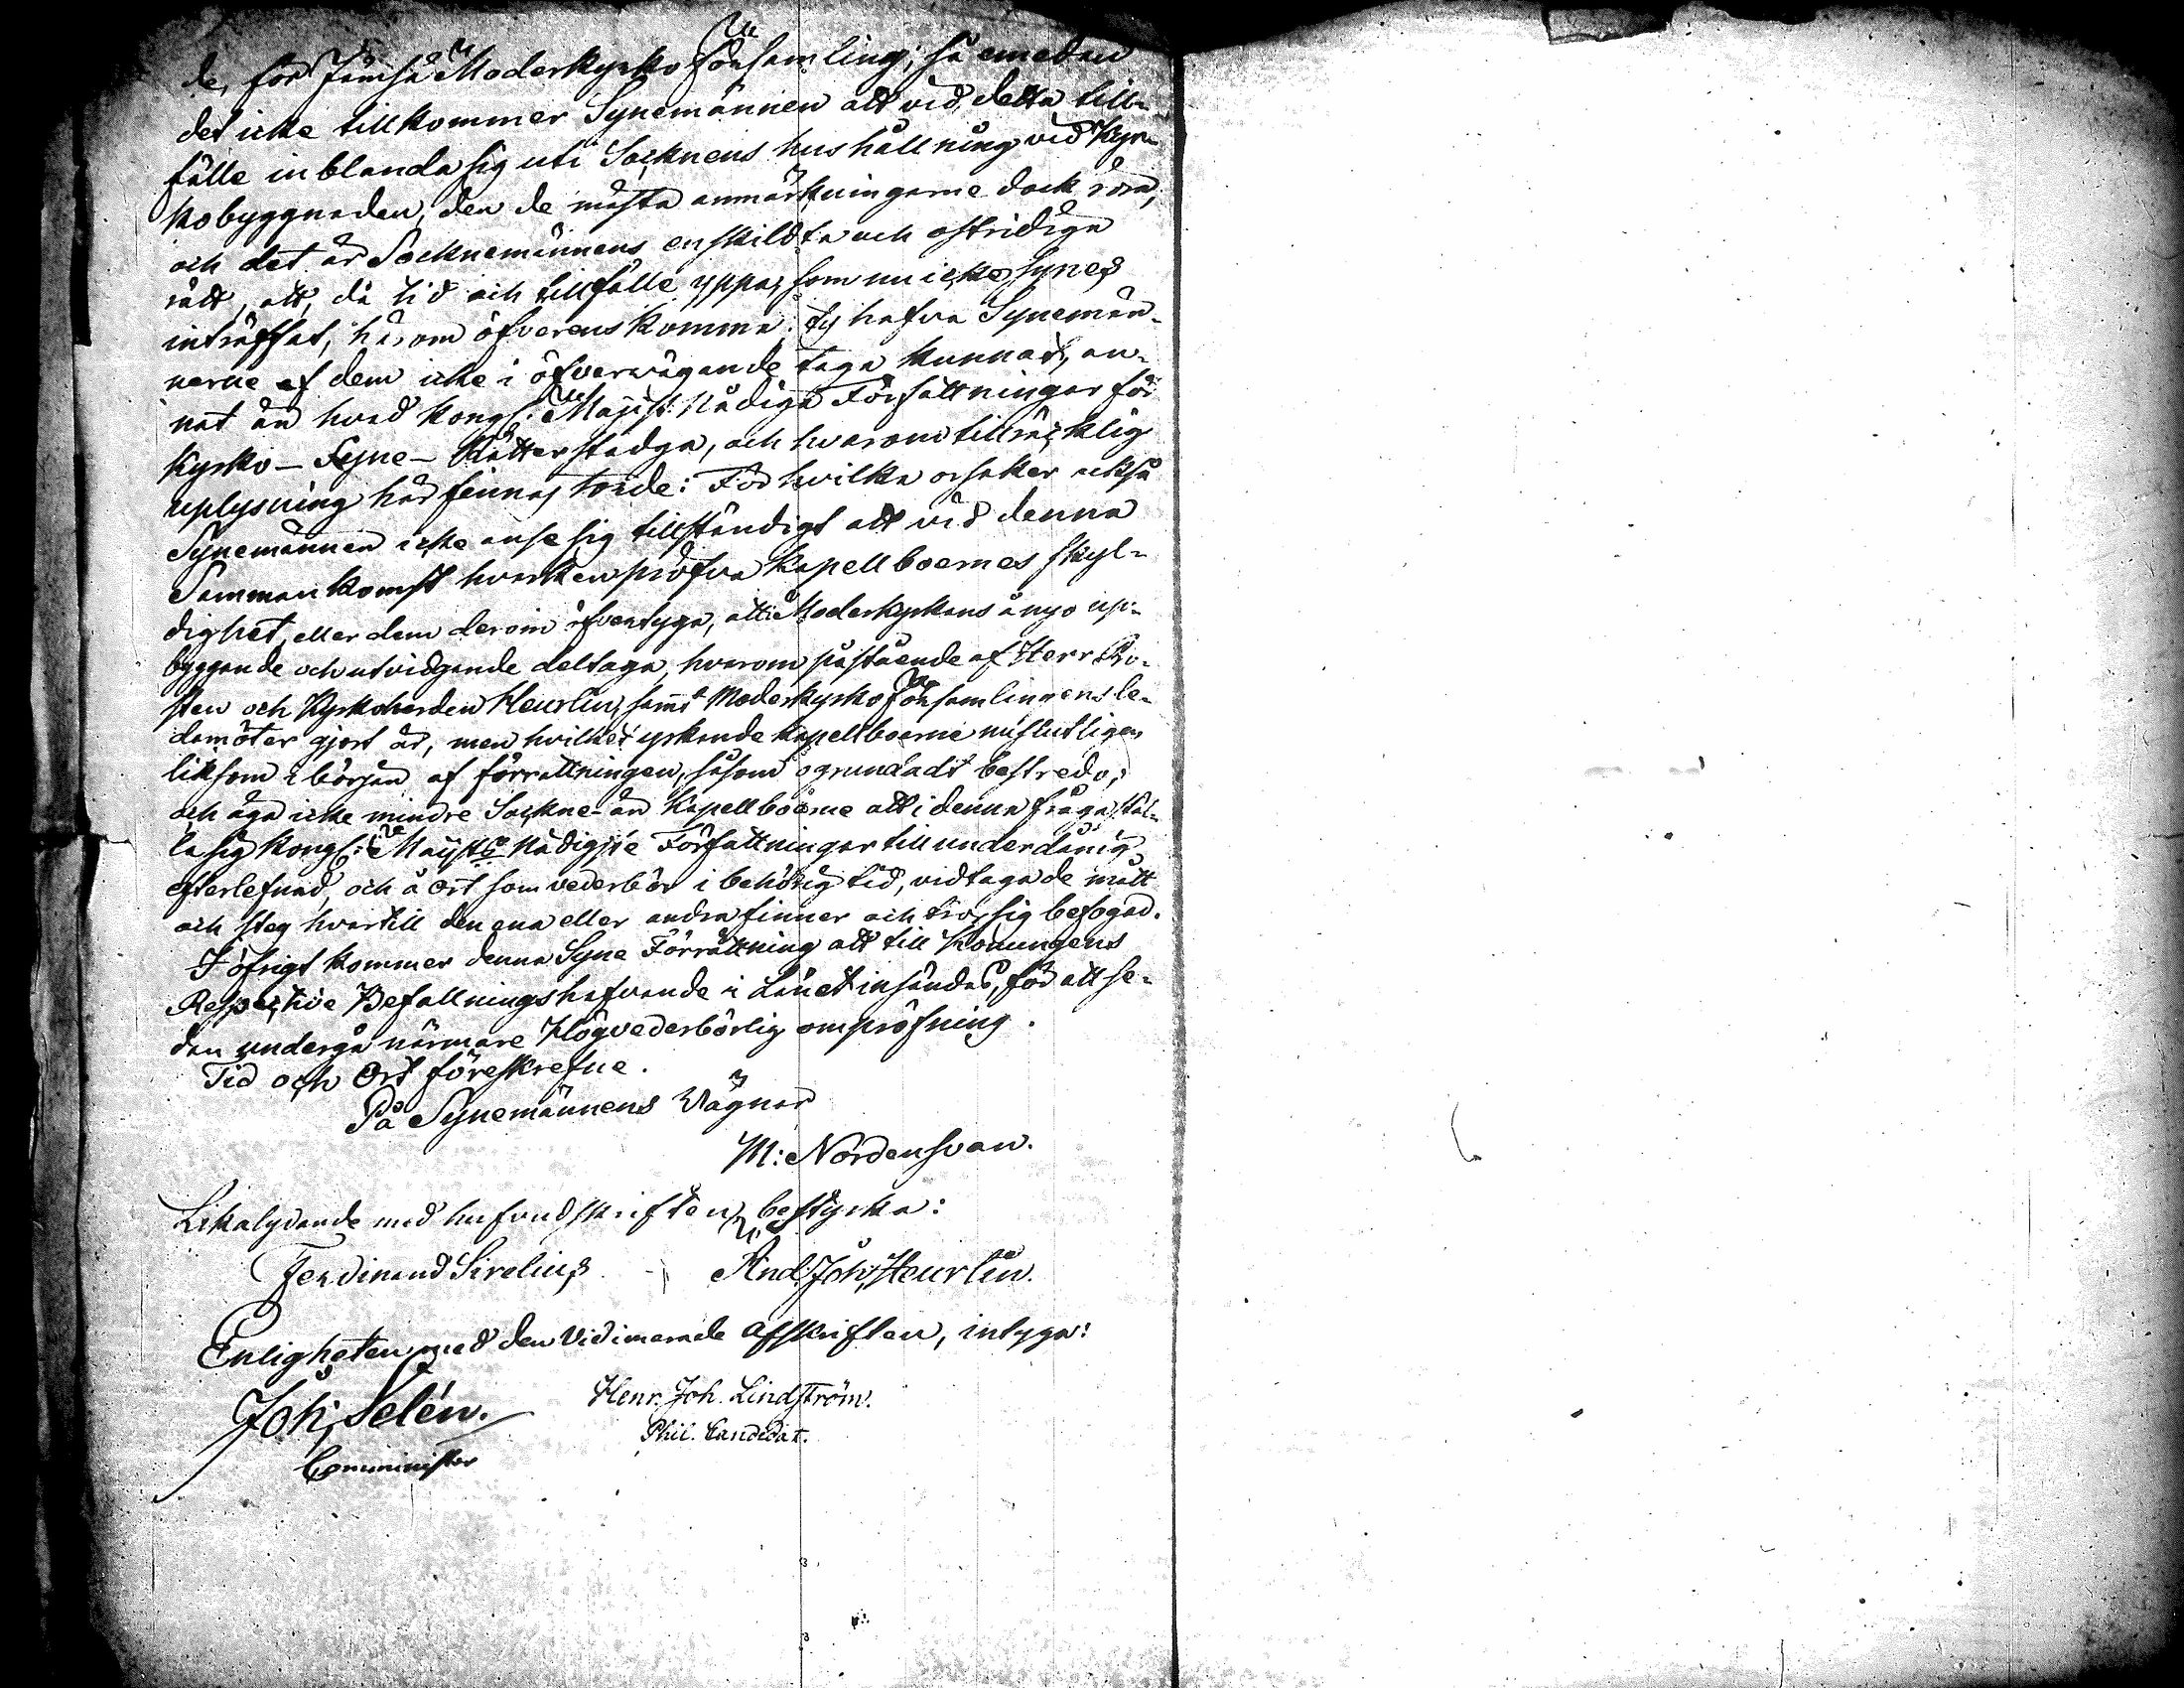 de, för Jämsä Moderkyrko församling; så emedan
det icke tillkommer Synemännen att vid detta till-
fälle inblanda sig uti Socknens hushållning vid Kyr-
kobyggnaden, den de mästa anmärkningarne dock röra,
och det är Socknemännens enskildta och ostridiga
rätt, att, då tid och tillfälle yppas, som nu icke synes
inträffat, härom öfverenskomma; ty hafva Synemän-
nerne af dem icke i öfvervägande taga kunnat, an-
nat än hvad Kongl: Majst: Nådiga Författningar för
Kyrko-Syne-Rätter stadga, och hvarom tillräcklig
uplysning här finnas torde: För hvilka orsaker också
Synemännen icke anse sig tillständigt att vid denna
Sammankomst hvarken pröfva Kapellboernes skyl-
dighet, eller dem derom öfvertyga, att i Moderkyrkans ånyo up-
byggande och utvidgande deltaga, hvarom påstående af Herr Pro-
sten och Kyrkoherden Heurlin, samt Moderkyrko församlingens le-
damöter gjort är, men hvilket yrkande Kapellboerne nu slutligen
liksom i början af förrättningen, såsom ogrundadt bestredo;
och äga icke mindre Sockne- än Kapellboerne att i denna fråga stäl-
la sig Kongl: Majsts Nådigste Författningar till underdånig
efterlefnad, och å ort som vederbör i behörig tid, vidtaga de mått
och steg hvartill den ena eller andra finner och tror sig befogad.
I öfrigt kommer denna Syne Förrättning att till Konungens
Respective Befallningshafvande i Länet insändas, för att se-
dan undergå närmare Högvederbörlig ompröfning.
Tid och Ort föreskrefne.
På Synemännens Vägnar
M: Nordensvan.
Likalydande med hufvudskriften, bestyrka:
Ferdinand Sirelius And: Joh: Heurlin.
Enligheten med den Vidimerade afskriften, intyga:
Joh: Selén. Henr. Joh. Lindström.
Comminister Phil. Candidat.